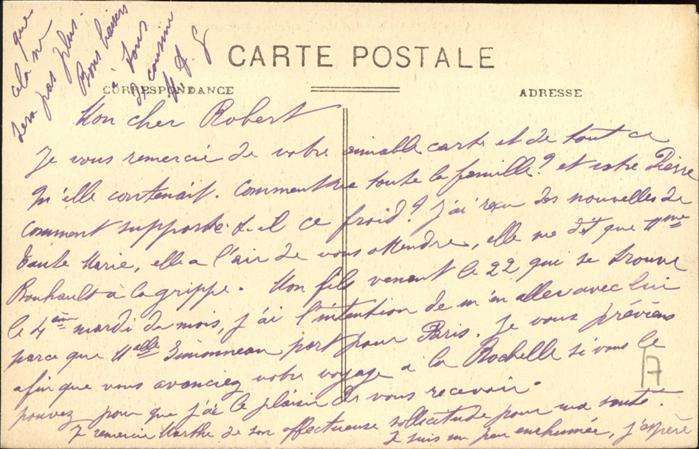 CARTE POSTALE
CORRESPONDANCE
ADRESSE
Mon cher Robert
Je vous remercie de votre aimable carte et de tout ce
qu'elle contenait. Comment va toute la famille? et votre Pierre
comment supporte-t-il ce froid? J'ai reçu des nouvelles de
tante Marie, elle a l'air de vous attendre, elle me dit que Mme
Rouhault a la grippe. Mon fils venant le 22 qui se trouve
le 4ème mardi du mois, j'ai l'intention de m'en aller avec lui
parce que Melle Simonneau part pour Paris. Je vous préviens
afin que vous avanciez votre voyage à la Rochelle si vous le
pouvez pour que j'ai le plaisir de vous recevoir.
Je remercie Marthe de son affectueuse sollicitude pour ma santé
Je suis un peu enrhumée, j'espère
que
cela ne
sera pas plus.
Bons baisers
à tous
cousine
A